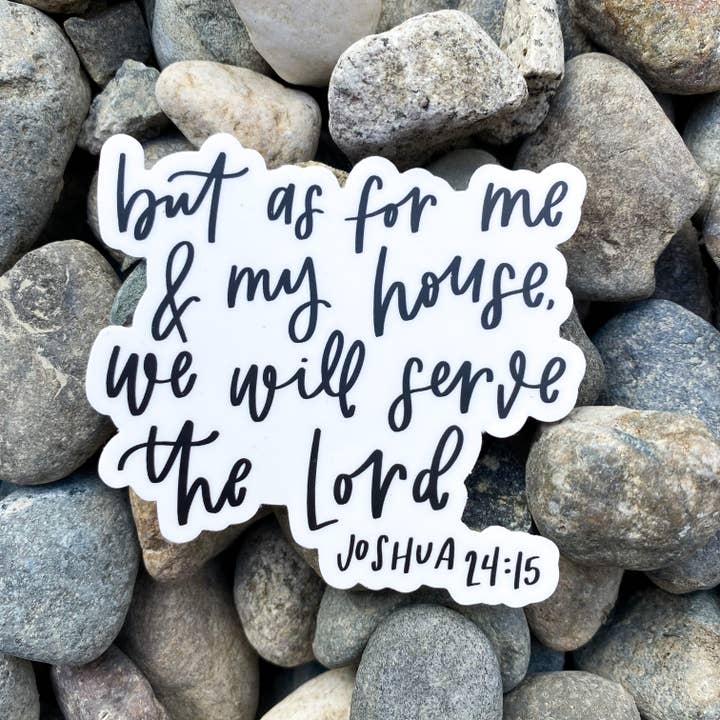 but as for me
& my house,
we will serve
the Lord
JOSHUA 24:15